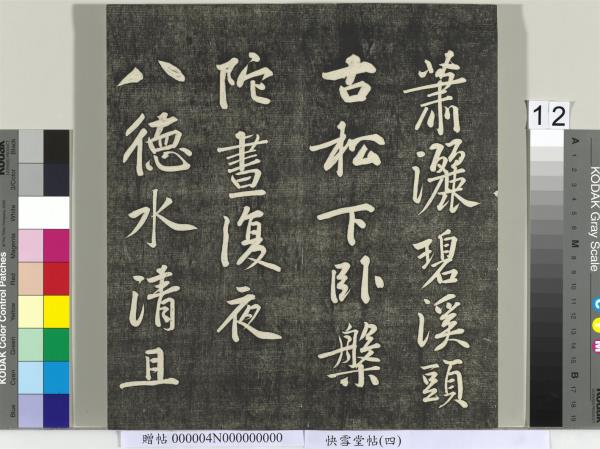 蕭灑碧溪頭
古松下卧盤
陀晝復夜
八德水清且
12
KODAK Color Control Patches
Blue
Cyan
Green
Yellow
Red
Magenta
White
3/Color
Black
KODAK Gray Scale
A
1
2
3
4
5
6
M
8
9
10
11
12
13
14
15
B
17
18
19
C
Y
M
贈帖 000004N000000000
快雪堂帖(四)